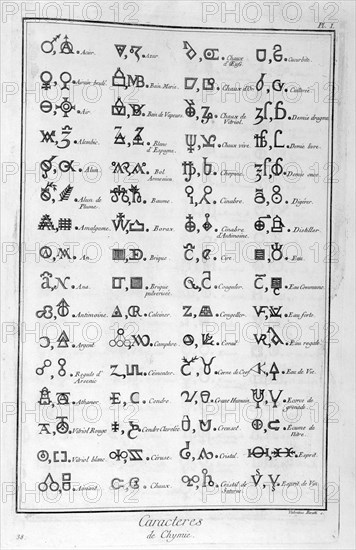 Pl. I.
Acier. Azur. Chaux d'Œufs Cucurbite.
Airain brulé. Bain Marie. Chaux d'Or. Cuivre.
Air. Bain de Vapeurs. Chaux de Vitriol. Demie dragme.
Alembic. Blanc d'Espagne. Chaux vive. Demie livre.
Alun. Bol Armenien. Chopine. Demie once.
Alun de Plume. Baume. Cinabre. Digérer.
Amalgame. Borax. Cinabre d'Antimoine. Distiller.
An. Brique. Cire. Eau.
Ana. Brique pulverisée. Coaguler. Eau Commune.
Antimoine. Calciner. Congeller. Eau forte.
Argent. Camphre. Corail. Eau regale.
Regule d'Arsenic. Cémenter. Corne de Cerf. Eau de Vie.
Athanor. Cendre. Crane Humain. Ecorce de grenade.
Vitriol Rouge. Creuset. Ecume de Nitre.
Vitriol blanc. Céruse. Cristal. Esprit.
Chaux. Cristal de Saturne. Esprit de Vin.
Caracteres
de Chymie.